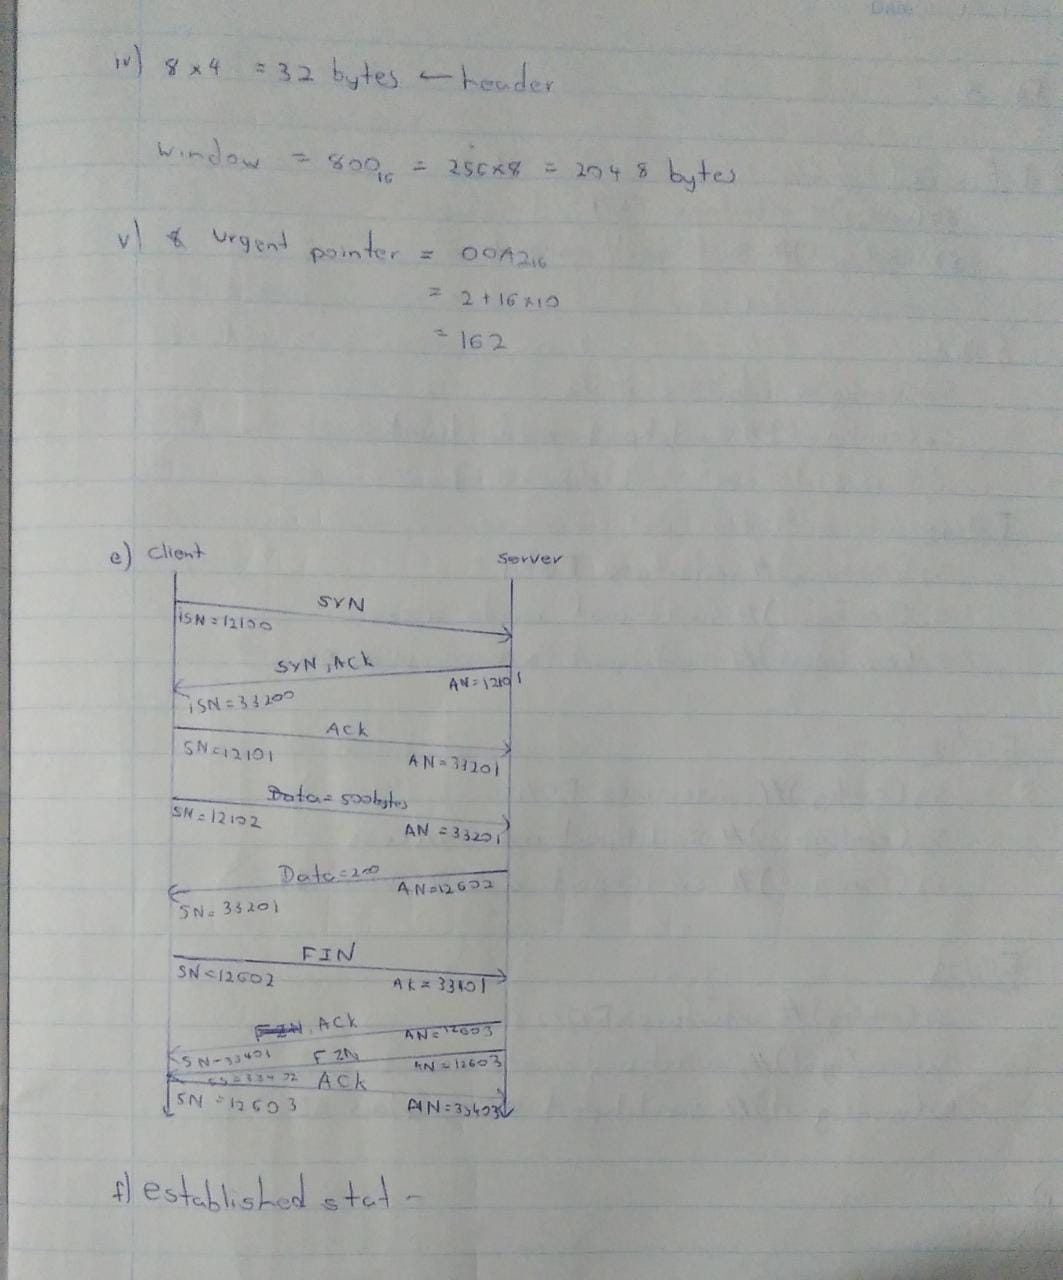 Date
iv) 8 x 4 = 32 bytes ← header
window = 800₁₆ = 256x8 = 2048 bytes
v) & urgent pointer = 00A2₁₆
= 2 + 16 x 10
= 162
e) client server
SYN
iSN = 12100
SYN, Ack
AN = 12101
iSN = 33200
Ack
SN = 12101
AN = 33201
Data = 500bytes
SN = 12102
AN = 33201
Data = 200
AN = 12602
SN = 33201
FIN
SN = 12602
AK = 33401
Ack
AN = 12603
SN - 33401
FIN
AN = 12603
33402
ACK
SN = 12603
AN = 33403
f) established stat -